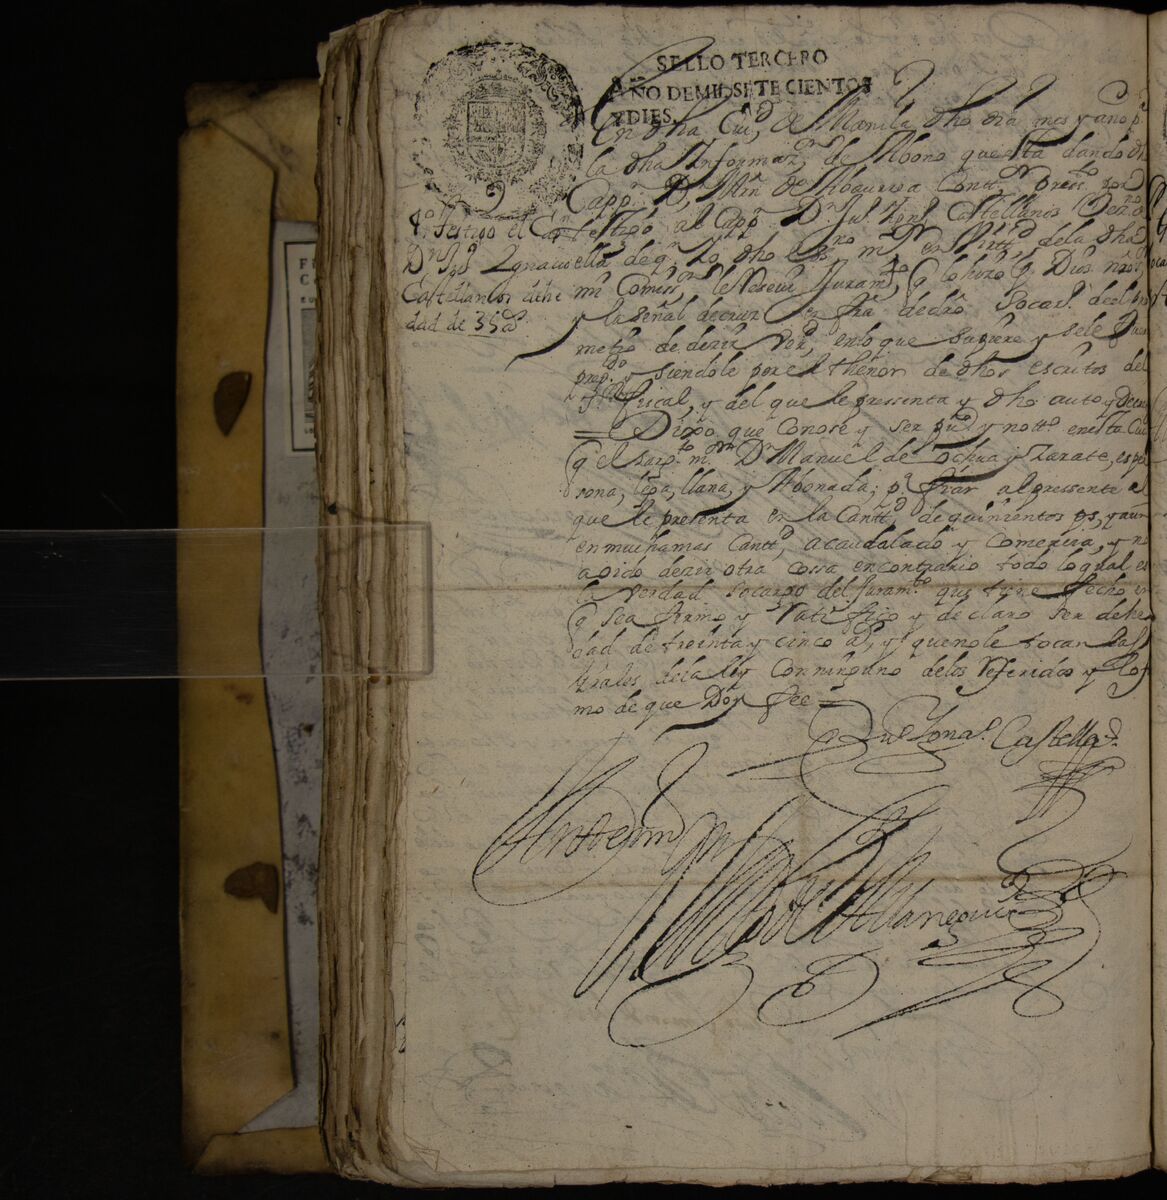 SELLO TERCERO
AÑO DE MIL SETECIENTOS
Y DIES.
En dha Ciud. de Manila dho dia mes y año pa
la dha Informazn. de Abono que esta dando dho
Cappn. Dn. Mrn. de
por testigo al Cappn. Dn. Jul. Ignl. Castellanos Vezno
de qn. Yo dho essno. m en virtd. de la dha
mi Comissn. le Resevi Juramto. q lo hizo p Dios nro sr
y la señal de cruz en fra de dro So cargo del pro
metio de dezir verd. en lo que supiere y se le fuere
pregdo. y siendole por el thenor de dhos escritos del
Sr. fiscal, y del que le pressenta y dho auto y decreto
= Dixo que Conose y ser puco. y notto. en esta Ciud.
q el sargto. mor. Dn. Manuel de Ochua y Zarate, es per
sona, lega, llana, y Abonada; pa. fiar al pressente al
que le presenta en la Cantd. de quinientos ps, y aun
en mucha mas Cantd. acaudalado y Comersia, y no
a oido dezir otra cossa en contrario todo lo qual es
la verdad so cargo del Juramto. que tiene fecho en
q se a firmo y Ratifico y declaro ser de he
dad de treinta y cinco as. y que no le tocan las
Grales de la ley con ninguno de los Referidos y lo fir
mo de que Doy fee =
4o. Testigo el Capn.
Dn. Jul. Ygnacio
Castellanos de he
dad de 35 as
Jul Ignal. Castellas.
Ante my